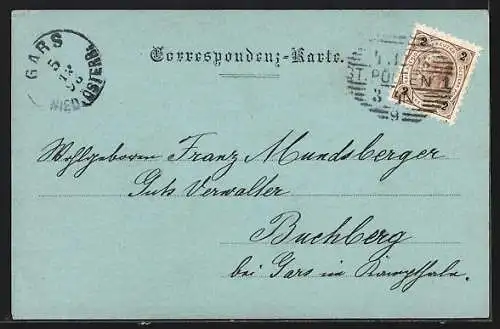 GARS
5
12
98
NIED. ÖSTERR.
Correspondenz-Karte.
ST. PÖLTEN 1
2 2
2 2
Wohlgeboren Franz Mundsberger
Guts Verwalter
Buchberg
bei Gars im Kampthale.